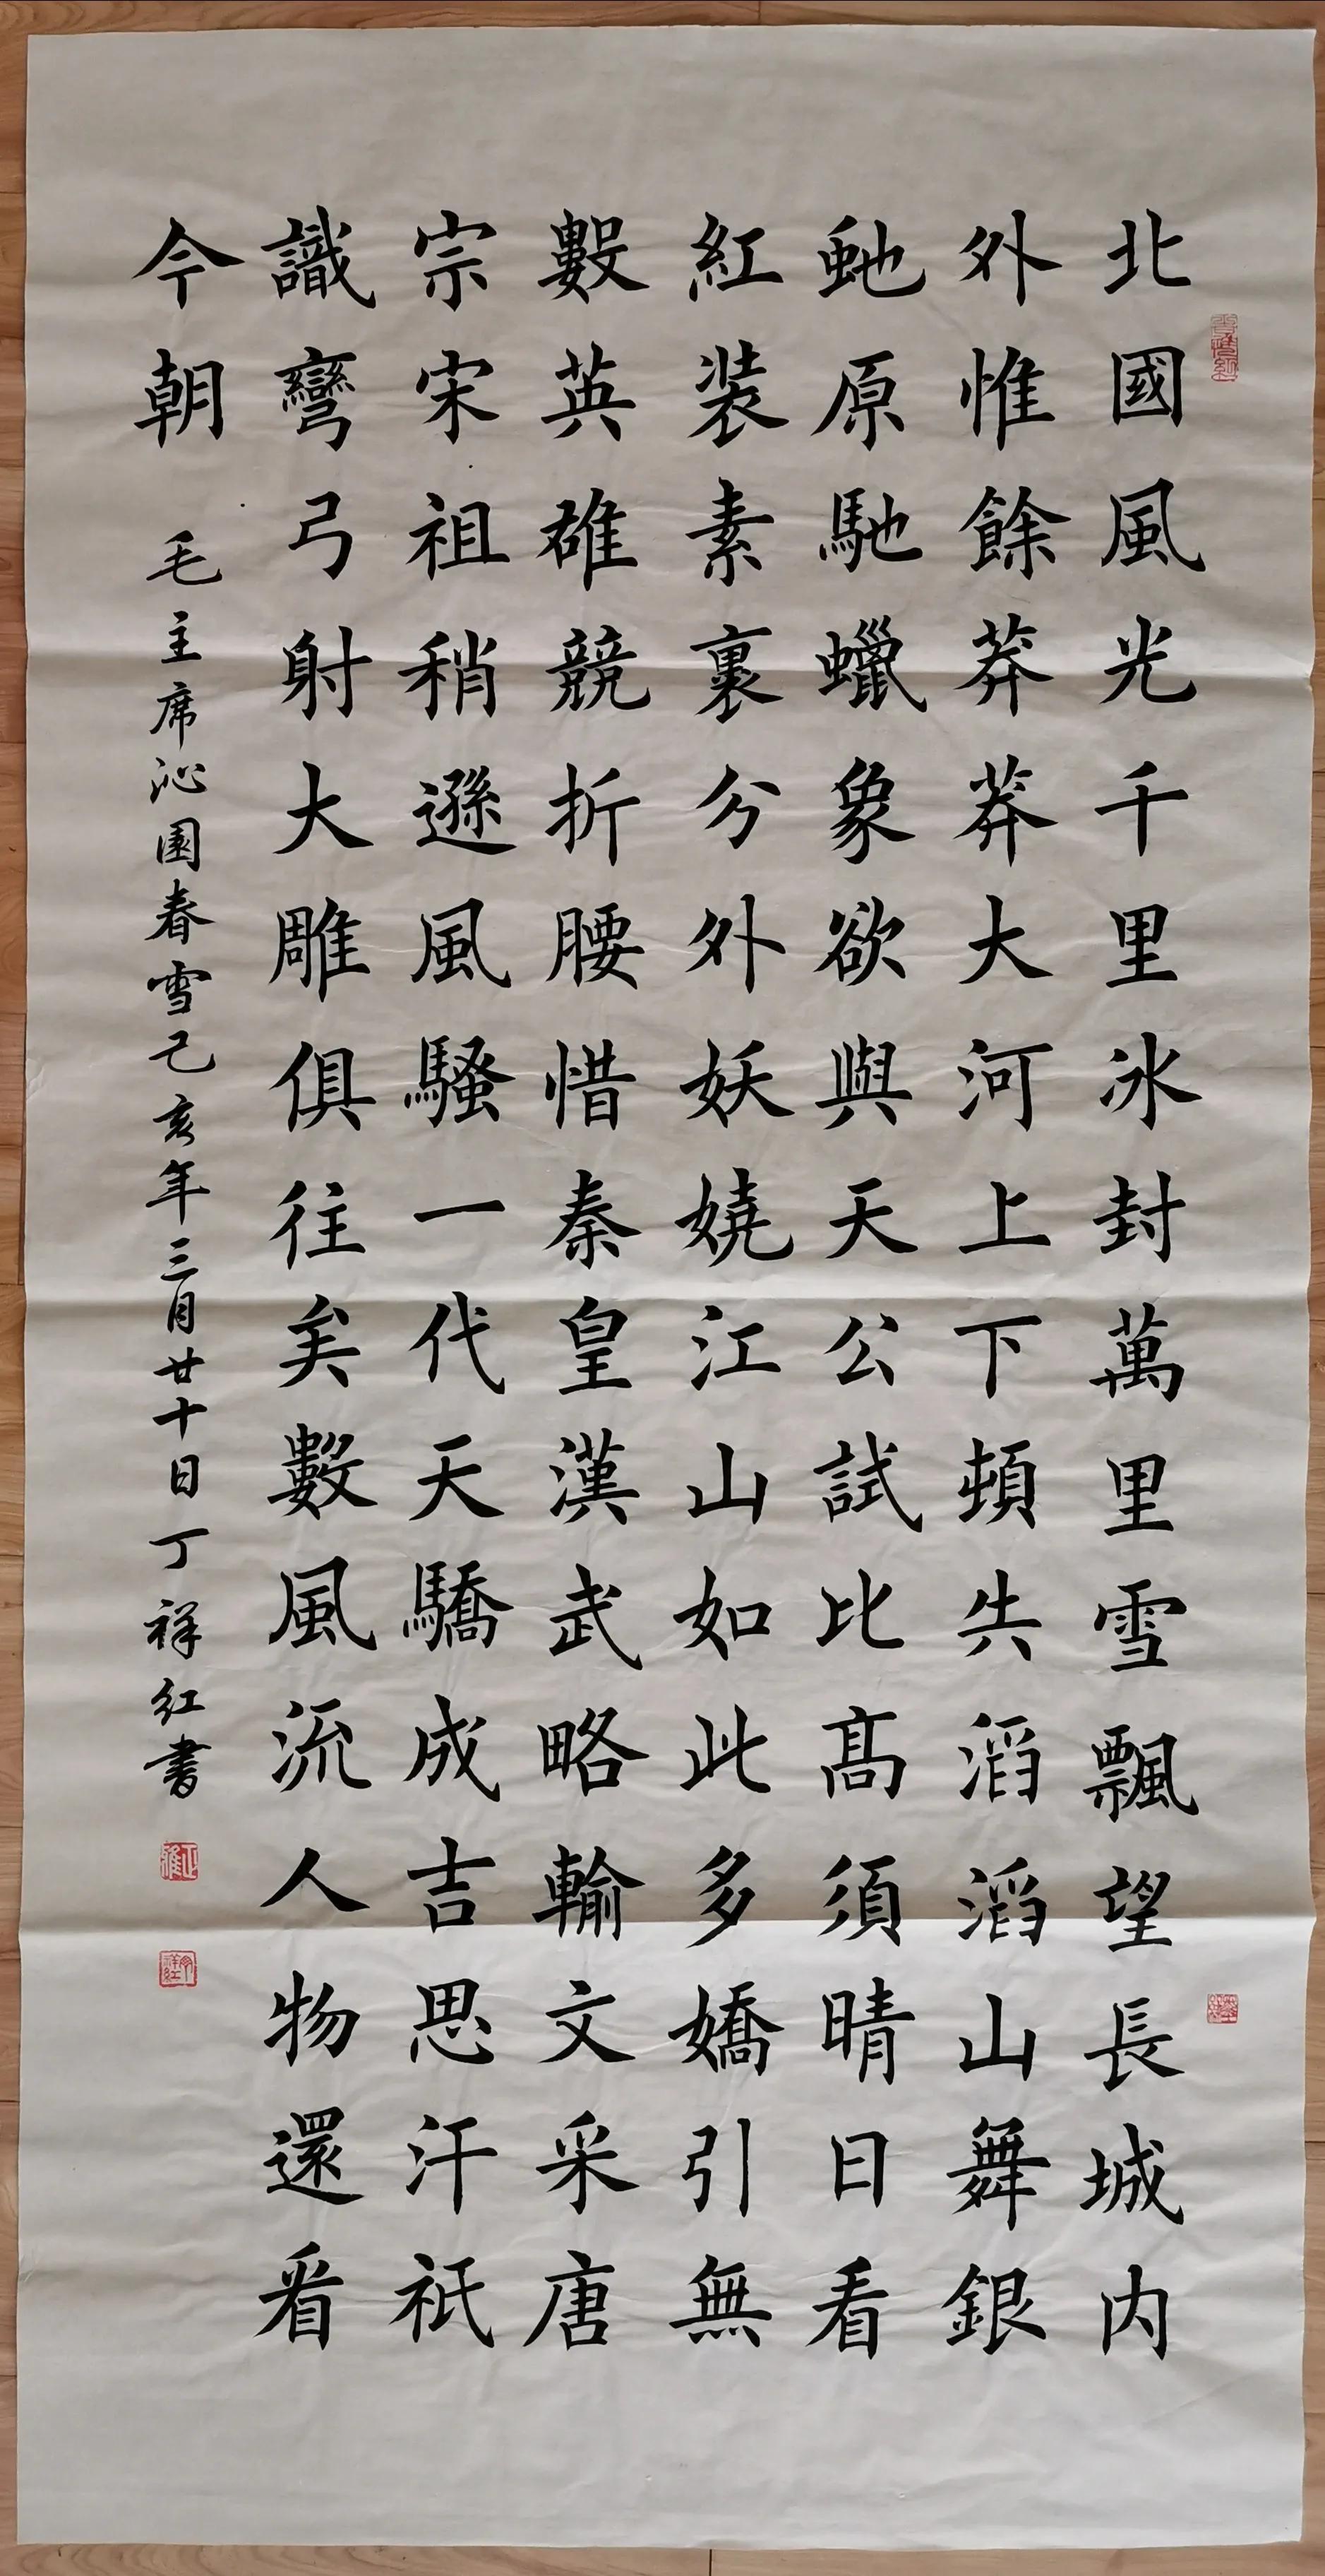 北國風光千里冰封萬里雪飄望長城内
外惟餘莽莽大河上下頓失滔滔山舞銀
虵原馳蠟象欲與天公試比髙須晴日看
紅装素裹兮外妖嬈江山如此多嬌引無
數英雄競折腰惜秦皇漢武略輸文采唐
宗宋祖稍遜風騷一代天驕成吉思汗祇
識彎弓射大雕俱往矣數風流人物還看
今朝
毛主席沁園春雪己亥年三月廿十日丁祥红書